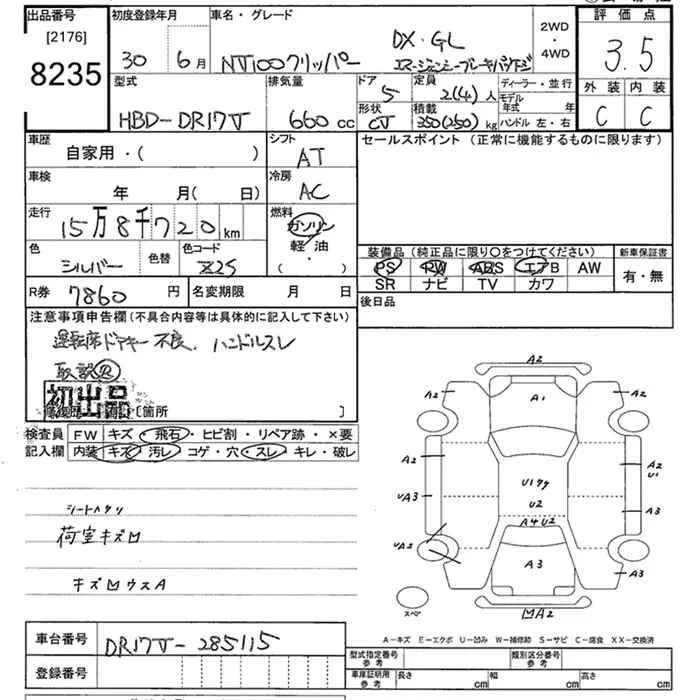 出品番号 初度登録年月 車名・グレード 2WD・4WD 評価点
[2176]
8235
30年 6月 NT100クリッパー DX・GL 3.5
エマージェンシーブレーキパッケージ
型式 排気量 ドア 定員 ディーラー・並行 外装 内装
HBD-DR17V 660cc 5 2(4)人 モデル年式 年 C C
形状 積載 ハンドル 左・右
CV 350(250)kg
車歴 シフト セールスポイント (正常に機能するものに限ります)
自家用・( ) AT
車検 冷房
年 月( 日) AC
走行 燃料
15万8千720km ガソリン
軽油
( )
色 色替 色コード
シルバー Z2S
装備品 (純正品に限り○をつけてください) 新車保証書
PS PW ABS エアB AW 有・無
SR ナビ TV カワ
R券 7860円 名変期限 月 日 後日品
注意事項申告欄(不具合内容等は具体的に記入して下さい)
運転席ドアキー不良. ハンドルスレ
取説R
初出品
[箇所 ]
検査員記入欄 FW キズ・飛石・ヒビ割・リペア跡・×要
内装 キズ・汚レ・コゲ・穴・スレ・キレ・破レ
荷室キズ凹
キズ凹ウスA
A2
A2 A1 A2
A2 A2
U1
U17ケ
UA3 U2 A3
A4U2
UA2
A3 A3
スペア 凹A2
A-キズ E-エクボ U-凹み W-補修跡 S-サビ C-腐食 XX-交換済
車台番号 DR17V-285115
型式指定番号 参考 類別区分番号 参考
登録番号
車庫証明用 参考 長さ cm 幅 cm 高さ cm